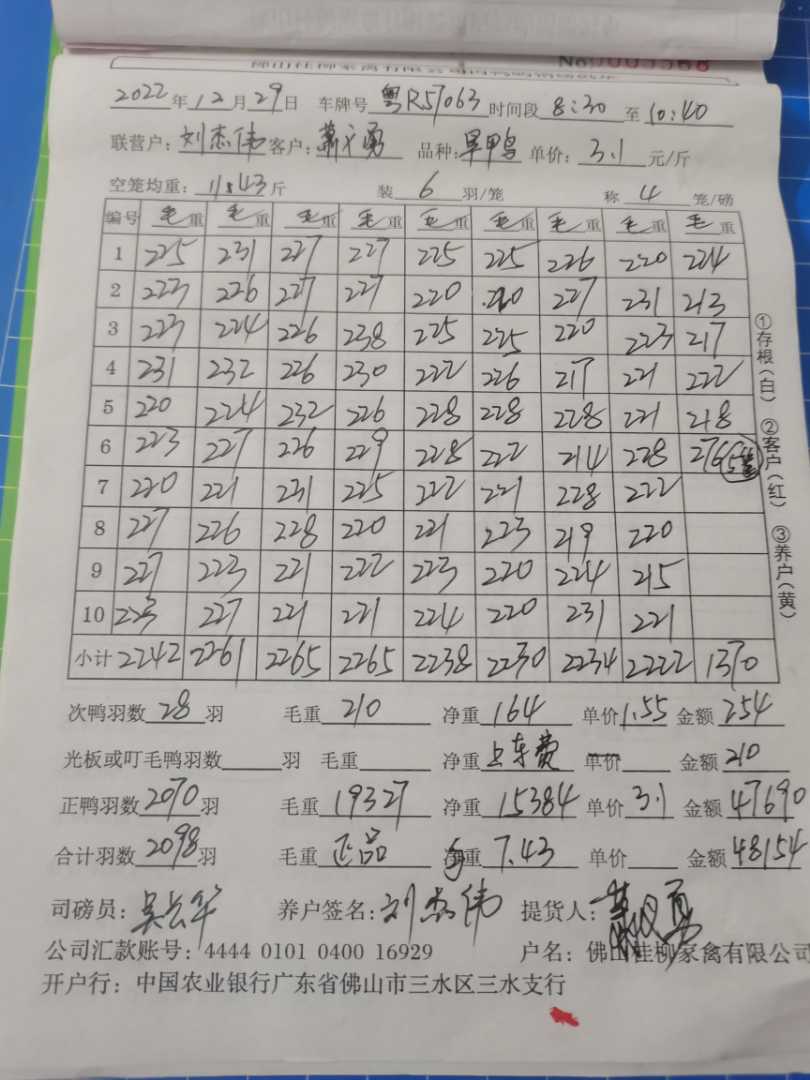 No 0005568
2022年12月29日 车牌号 粤R57063 时间段 8:30 至 10:40
联营户: 刘杰伟 客户: 勇 品种: 旱甲鸟 单价: 3.1 元/斤
空笼均重: 11.43 斤 装 6 羽/笼 称 4 笼/磅
编号 毛重 毛重 毛重 毛重 毛重 毛重 毛重 毛重 毛重
1 225 231 227 227 225 225 226 220 224
2 223 226 227 227 220 220 227 231 213
3 223 224 226 238 225 225 220 223 217
4 231 232 226 230 222 226 217 221 222
5 220 224 232 226 228 228 228 221 218
6 223 227 226 229 228 222 214 228 276
7 220 221 231 225 222 221 228 222
8 227 226 228 220 221 223 219 220
9 227 223 221 222 223 220 224 215
10 223 227 221 221 224 220 231 221
小计 2242 2261 2265 2265 2238 2230 2234 2222 1370
①存根(白) ②客户(红) ③养户(黄)
次鸭羽数 28 羽 毛重 210 净重 164 单价 1.55 金额 254
光板或叮毛鸭羽数 羽 毛重 净重 上车费 单价 金额 210
正鸭羽数 2070 羽 毛重 19327 净重 15384 单价 3.1 金额 47690
合计羽数 2098 羽 毛重 正品 净重 7.43 单价 金额 48154
司磅员: 吴华 养户签名: 刘杰伟 提货人:
公司汇款账号: 4444 0101 0400 16929 户名: 佛山桂柳家禽有限公司
开户行: 中国农业银行广东省佛山市三水区三水支行